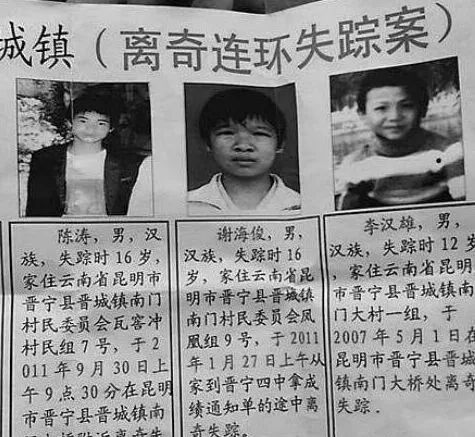 城镇（离奇连环失踪案）
陈涛，男，汉
族，失踪时16岁，
家住云南省昆明
市晋宁县晋城镇南门
村民委员会瓦窑冲
村民组7号，于2
011年9月30日上
午9点30分在昆明
市晋宁县晋城镇南
谢海俊，男，
汉族，失踪时16
岁，家住云南省昆
明市晋宁县晋城镇
南门村民委员会凤
凰组9号，于2011
年1月27日上午从
家到晋宁四中拿成
绩通知单的途中离
奇失踪。
李汉雄，男，
汉族，失踪时12岁，
家住云南省昆明
市晋宁县晋城镇南
门大村一组，于
2007年5月1日在
昆明市晋宁县晋城
镇南门大桥处离奇
失踪．